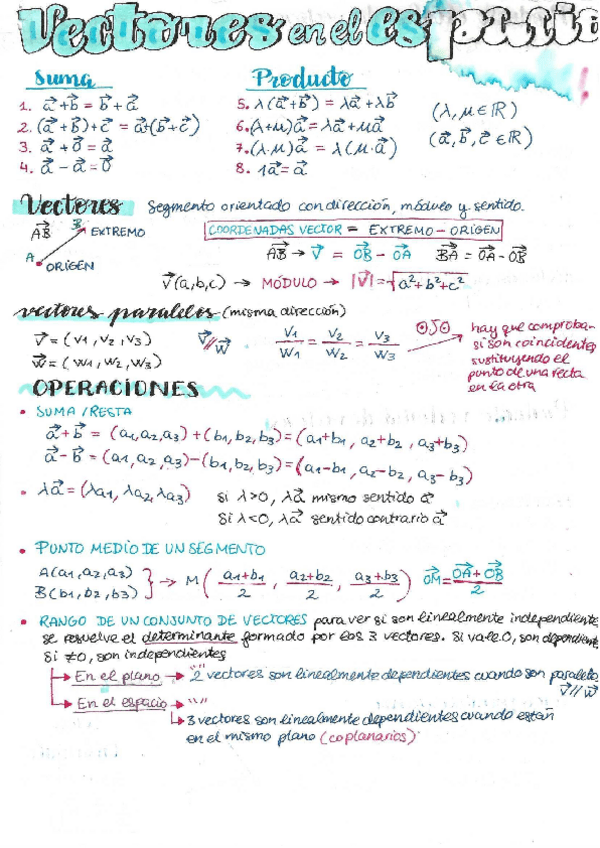 Vectores en el espacio!
Suma
Producto
1. a⃗+b⃗ = b⃗+a⃗
2. (a⃗+b⃗)+c⃗ = a⃗+(b⃗+c⃗)
3. a⃗+0⃗ = a⃗
4. a⃗-a⃗ = 0⃗
5. λ(a⃗+b⃗) = λa⃗+λb⃗
6. (λ+μ)a⃗ = λa⃗+μa⃗
7. (λ·μ)a⃗ = λ(μ·a⃗)
8. 1a⃗ = a⃗
(λ, μ ∈ ℝ)
(a⃗, b⃗, c⃗ ∈ ℝ)
Vectores segmento orientado con dirección, módulo y sentido.
AB⃗ B EXTREMO
A ORIGEN
COORDENADAS VECTOR = EXTREMO - ORIGEN
AB⃗ → V⃗ = OB⃗ - OA⃗ BA⃗ = OA⃗ - OB⃗
V⃗(a,b,c) → MÓDULO → |V⃗| = √a²+b²+c²
vectores paralelos (misma dirección)
V⃗ = (V1, V2, V3)
W⃗ = (W1, W2, W3)
V⃗//W⃗ V1/W1 = V2/W2 = V3/W3
OJO → hay que comprobar
si son coincidentes
sustituyendo el
punto de una recta
en la otra
OPERACIONES
• SUMA/RESTA
a⃗+b⃗ = (a1,a2,a3)+(b1,b2,b3) = (a1+b1, a2+b2, a3+b3)
a⃗-b⃗ = (a1,a2,a3)-(b1,b2,b3) = (a1-b1, a2-b2, a3-b3)
• λa⃗ = (λa1, λa2, λa3) si λ>0, λa⃗ mismo sentido a⃗
Si λ<0, λa⃗ sentido contrario a⃗
• PUNTO MEDIO DE UN SEGMENTO
A(a1,a2,a3)
B(b1,b2,b3) } → M (a1+b1/2, a2+b2/2, a3+b3/2) OM⃗ = OA⃗+OB⃗/2
• RANGO DE UN CONJUNTO DE VECTORES para ver si son linealmente independiente
se resuelve el determinante formado por los 3 vectores. Si vale 0, son dependiente
Si ≠0, son independientes
→ En el plano → "" 2 vectores son linealmente dependientes cuando son paralelo
V⃗//W⃗
→ En el espacio → ""
→ 3 vectores son linealmente dependientes cuando están
en el mismo plano (coplanarios)